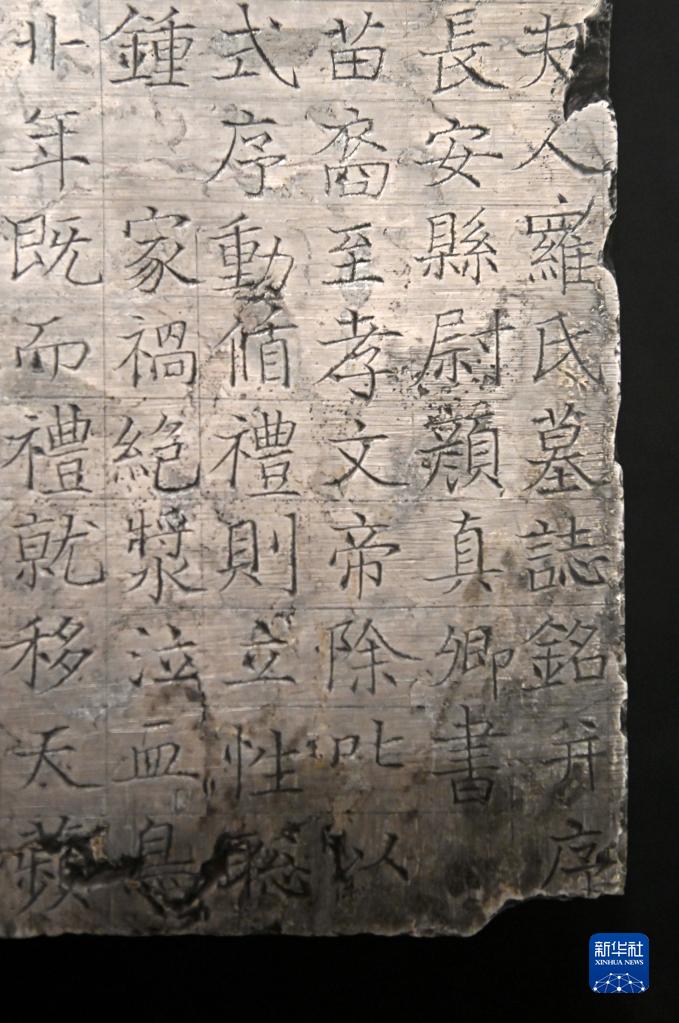 夫人羅氏墓誌銘并序
長安縣尉顏真卿書
苗裔至孝文帝除叱以
式序動偱禮則立性聡
鍾 家禍絶漿泣血
年既而禮就移天蘋
新华社
XINHUA NEWS